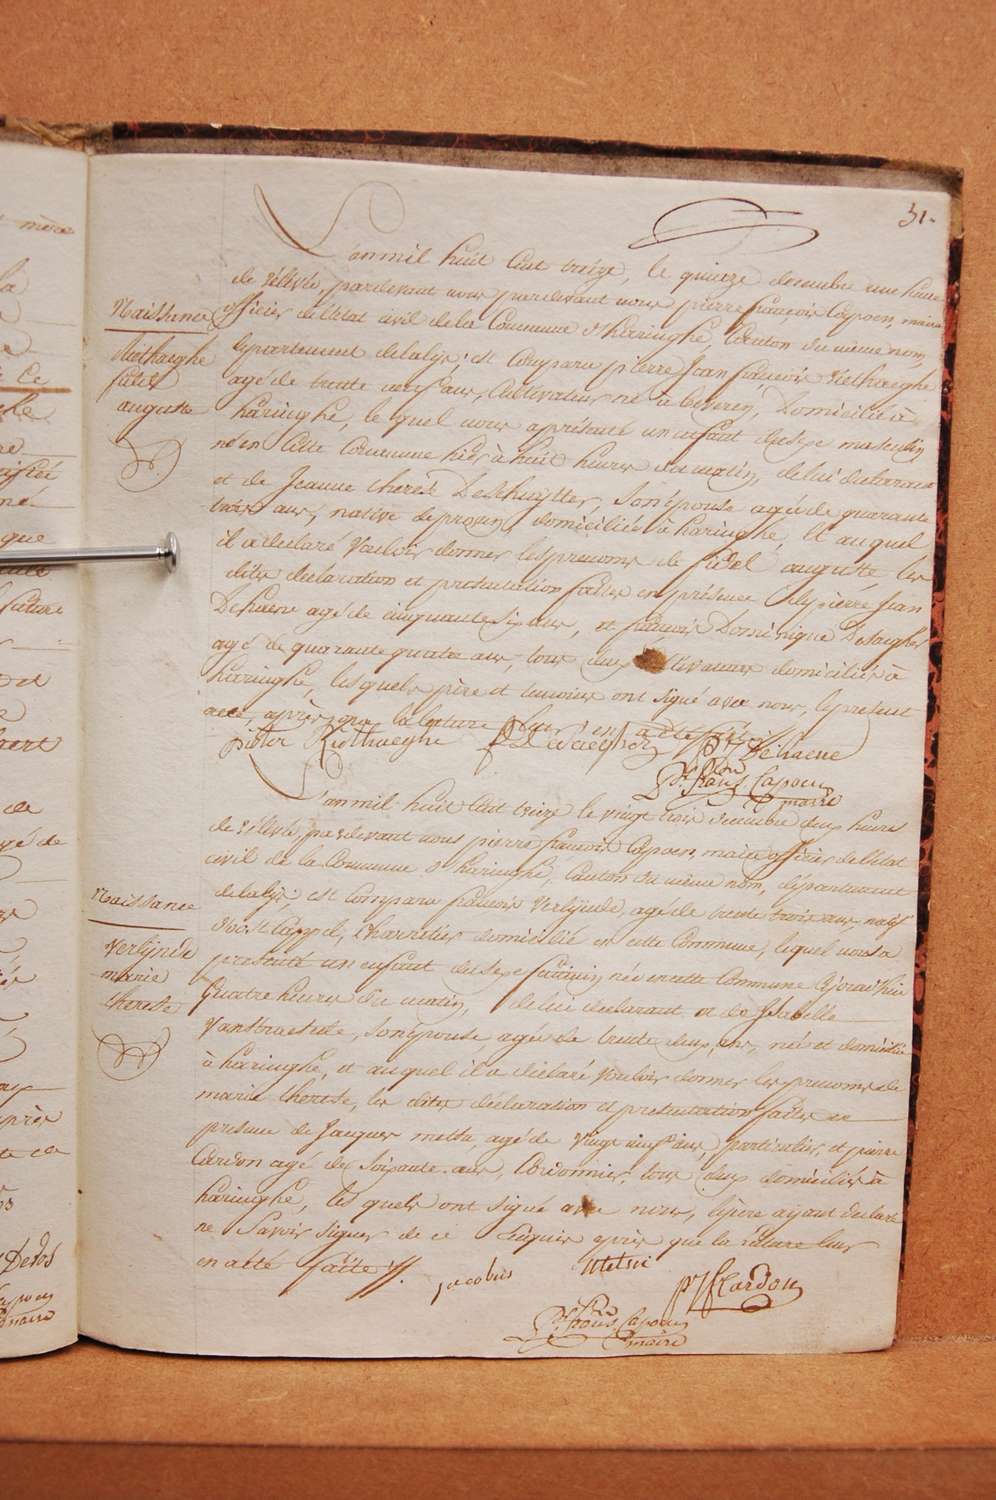 31.
L'an mil huit Cent treize, le quinze decembre une heure
de rélevée, pardevant nous pardevant nous pierre françois Capoen, maire
Naissance officier de l'Etat civil de la Commune d'haringhe, Canton du même nom,
Riethaeghe département de la lys; est Comparu pierre Jean françois Riethaeghe
fidel agé de trente neuf ans, Cultivateur né à beveren, Domicilié à
auguste haringhe, le quel nous a présenté un enfant du sexe masculin
né en cette Commune hier à huit heures du matin, de lui declarant
et de Jeanne therese Deschuytter, son épouse agée de quarante
trois ans, native de proven domiciliée à haringhe, et auquel
il a declaré vouloir donner les prenoms de fidel auguste, les
dites declaration et présentation faites en présence de pierre Jean
Dehaene agé de cinquante six ans, et françois Dominique
agé de quarante quatre ans, tous deux Cultivateurs domiciliés à
haringhe, les quels père et temoins ont signé avec nous, le présent
acte, après que la lecture leur en a été faite
pieter Riethaeghe P J Dehaene
P. frans Capoen
maire
L'an mil huit Cent treize le vingt trois decembre deux heures
de rélevée, pardevant nous pierre françois Capoen, maire officier de l'Etat
civil de la Commune d'haringhe, Canton du même nom, département
Naissance de la lys; est Comparu francois Verlynde, agé de trente trois ans, natif
d'oost Cappel, Charretier domicilié en cette Commune, lequel nous a
Verlynde présenté un enfant du sexe féminin née en cette Commune Cejourd'hui
marie Quatre heures du matin, de lui declarant et de Isabelle
therese Vanstraeseele, son épouse agée de trente deux ans, née et domiciliée
à haringhe, et auquel il a déclaré vouloir donner les prenoms de
marie therese, les dites déclaration et présentation faites en
présence de Jacques metsu, agé de vingt neuf ans, particulier, et pierre
Cardon agé de soixante ans, Cordonnier, tous deux domiciliés à
haringhe, les quels ont signé avec nous, le père ayant declaré
ne savoir signer de ce enquis après que la lecture leur
en a été faite //.
jacobus Metsu
P J Cardon
P. frans Capoen
maire
mère
Ce
que
future
apres
Devos
Capoen
maire